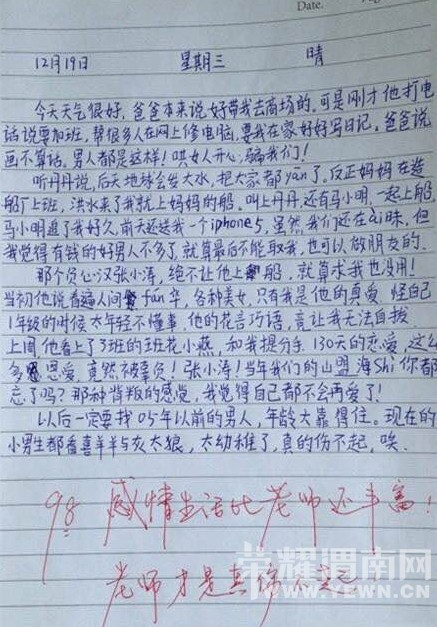 Date.
12月19日 星期三 晴
今天天气很好，爸爸本来说好带我去商场的，可是刚才他打电
话说要加班，帮很多人在网上修电脑，要我在家好好写日记。爸爸说
画不算话，男人都是这样！哄女人开心，骗我们！
听丹丹说，后天地球会发大水，把大家都yān了，反正妈妈在造
船厂上班，洪水来了我就上妈妈的船，叫上丹丹，还有马小明，一起上船，
马小明追了我好久，前天还送我一个iphone5，虽然，我们还在ài昧，但
我觉得有钱的好男人不多了，就算最后不能取我，也可以做朋友的。
那个负心汉张小涛，绝不让他上船，就算求我也没用！
当初他说看遍人间fán华，各种美女，只有我是他的真爱，怪自己
1年级的时候太年轻不懂事，他的花言巧语，竟让我无法自拔，
上周，他看上了3班的班花小燕，和我提分手，130天的恋爱，这么
多恩爱，竟然被辜负！张小涛！当年我们的山盟海Shì你都
忘了吗？那种背叛的感觉，我觉得自己都不会再爱了！
以后一定要找05年以前的男人，年龄大靠得住。现在的
小男生都看喜羊羊与灰太狼，太幼稚了，真的伤不起，唉。
98 感情生活比老师还丰富！
老师才是真伤不起！
荣耀渭南网
WWW.YEWN.CN